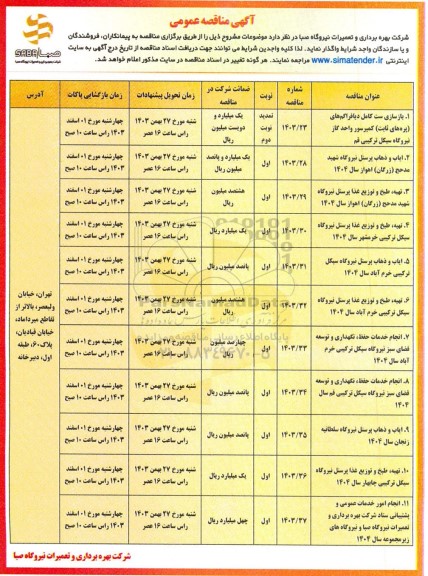 آگهی مناقصه عمومی
صبا
شرکت بهره برداری و تعمیرات نیروگاه صبا در نظر دارد موضوعات مشروح ذیل را از طریق برگزاری مناقصه به پیمانکاران، فروشندگان
و یا سازندگان واجد شرایط واگذار نماید. لذا کلیه واجدین شرایط می توانند جهت دریافت اسناد مناقصه از تاریخ درج آگهی به سایت
اینترنتی www.simatender.ir مراجعه نمایند. هر گونه تغییر در اسناد مناقصه در سایت مذکور اعلام خواهد شد.
عنوان مناقصه شماره مناقصه نوبت ضمانت شرکت در مناقصه زمان تحویل پیشنهادات زمان بازگشایی پاکات آدرس
۱. بازسازی ست کامل دیافراگم‌های (پره‌های ثابت) کمپرسور واحد گاز نیروگاه سیکل ترکیبی قم ۱۴۰۳/۲۳ تمدید نوبت دوم یک میلیارد و دویست میلیون ریال شنبه مورخ ۲۷ بهمن ۱۴۰۳ راس ساعت ۱۶ عصر چهارشنبه مورخ ۰۱ اسفند ۱۴۰۳ راس ساعت ۱۰ صبح
۲. ایاب و ذهاب پرسنل نیروگاه شهید مدحج (زرگان) اهواز سال ۱۴۰۴ ۱۴۰۳/۲۸ اول یک میلیارد و پانصد میلیون ریال شنبه مورخ ۲۷ بهمن ۱۴۰۳ راس ساعت ۱۶ عصر چهارشنبه مورخ ۰۱ اسفند ۱۴۰۳ راس ساعت ۱۰ صبح
۳. تهیه، طبخ و توزیع غذا پرسنل نیروگاه شهید مدحج (زرگان) اهواز سال ۱۴۰۴ ۱۴۰۳/۲۹ اول هشتصد میلیون ریال شنبه مورخ ۲۷ بهمن ۱۴۰۳ راس ساعت ۱۶ عصر چهارشنبه مورخ ۰۱ اسفند ۱۴۰۳ راس ساعت ۱۰ صبح
۴. تهیه، طبخ و توزیع غذا پرسنل نیروگاه سیکل ترکیبی خرمشهر سال ۱۴۰۴ ۱۴۰۳/۳۰ اول یک میلیارد ریال شنبه مورخ ۲۷ بهمن ۱۴۰۳ راس ساعت ۱۶ عصر چهارشنبه مورخ ۰۱ اسفند ۱۴۰۳ راس ساعت ۱۰ صبح
۵. ایاب و ذهاب پرسنل نیروگاه سیکل ترکیبی خرم آباد سال ۱۴۰۴ ۱۴۰۳/۳۱ اول پانصد میلیون ریال شنبه مورخ ۲۷ بهمن ۱۴۰۳ راس ساعت ۱۶ عصر چهارشنبه مورخ ۰۱ اسفند ۱۴۰۳ راس ساعت ۱۰ صبح
۶. تهیه، طبخ و توزیع غذا پرسنل نیروگاه سیکل ترکیبی خرم آباد سال ۱۴۰۴ ۱۴۰۳/۳۲ اول میلیون ریال شنبه مورخ ۲۷ بهمن ۱۴۰۳ راس ساعت ۱۶ عصر چهارشنبه مورخ ۰۱ اسفند ۱۴۰۳ راس ساعت ۱۰ صبح
۷. انجام خدمات حفظ، نگهداری و توسعه فضای سبز نیروگاه سیکل ترکیبی خرم آباد سال ۱۴۰۴ ۱۴۰۳/۳۳ اول چهارصد میلیون ریال شنبه مورخ ۲۷ بهمن ۱۴۰۳ راس ساعت ۱۶ عصر چهارشنبه مورخ ۰۱ اسفند ۱۴۰۳ راس ساعت ۱۰ صبح
۸. انجام خدمات حفظ، نگهداری و توسعه فضای سبز نیروگاه سیکل ترکیبی قم سال ۱۴۰۴ ۱۴۰۳/۳۴ اول پانصد میلیون ریال شنبه مورخ ۲۷ بهمن ۱۴۰۳ راس ساعت ۱۶ عصر چهارشنبه مورخ ۰۱ اسفند ۱۴۰۳ راس ساعت ۱۰ صبح
۹. ایاب و ذهاب پرسنل نیروگاه سلطانیه زنجان سال ۱۴۰۴ ۱۴۰۳/۳۵ اول پانصد میلیون ریال شنبه مورخ ۲۷ بهمن ۱۴۰۳ راس ساعت ۱۶ عصر چهارشنبه مورخ ۰۱ اسفند ۱۴۰۳ راس ساعت ۱۰ صبح
۱۰. تهیه، طبخ و توزیع غذا پرسنل نیروگاه سیکل ترکیبی چابهار سال ۱۴۰۴ ۱۴۰۳/۳۶ اول یک میلیارد ریال شنبه مورخ ۲۷ بهمن ۱۴۰۳ راس ساعت ۱۶ عصر چهارشنبه مورخ ۰۱ اسفند ۱۴۰۳ راس ساعت ۱۰ صبح
۱۱. انجام امور خدمات عمومی و پشتیبانی ستاد شرکت بهره برداری و تعمیرات نیروگاه صبا و نیروگاه های زیرمجموعه سال ۱۴۰۴ ۱۴۰۳/۳۷ اول چهل میلیارد ریال شنبه مورخ ۲۷ بهمن ۱۴۰۳ راس ساعت ۱۶ عصر چهارشنبه مورخ ۰۱ اسفند ۱۴۰۳ راس ساعت ۱۰ صبح
تهران، خیابان
ولیعصر، بالاتر از
تقاطع میرداماد،
خیابان قبادیان،
پلاک ۶۰، طبقه
اول، دبیرخانه
شرکت بهره برداری و تعمیرات نیروگاه صبا